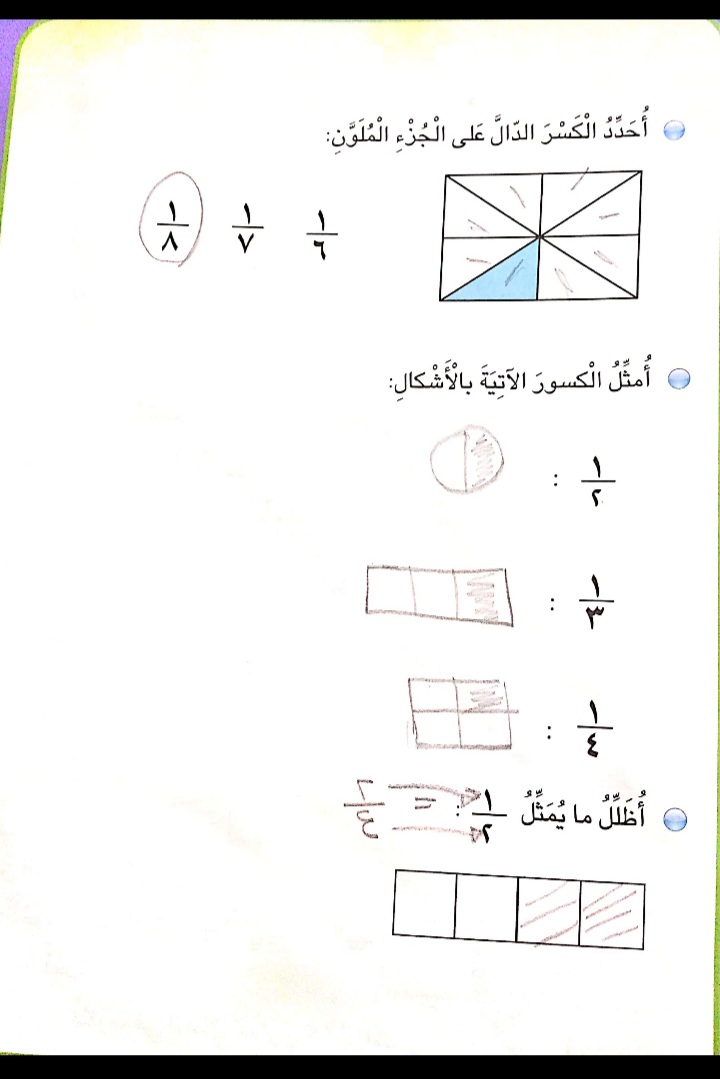 أُحَدِّدُ الْكَسْرَ الدّالَّ عَلى الْجُزْءِ الْمُلَوَّنِ:
١/٦ ١/٧ ١/٨
أُمثِّلُ الْكسورَ الآتِيَةَ بالْأَشْكالِ:
١/٢ :
١/٣ :
١/٤ :
أُظَلِّلُ ما يُمَثِّلُ ١/٢ : = ٢/٤